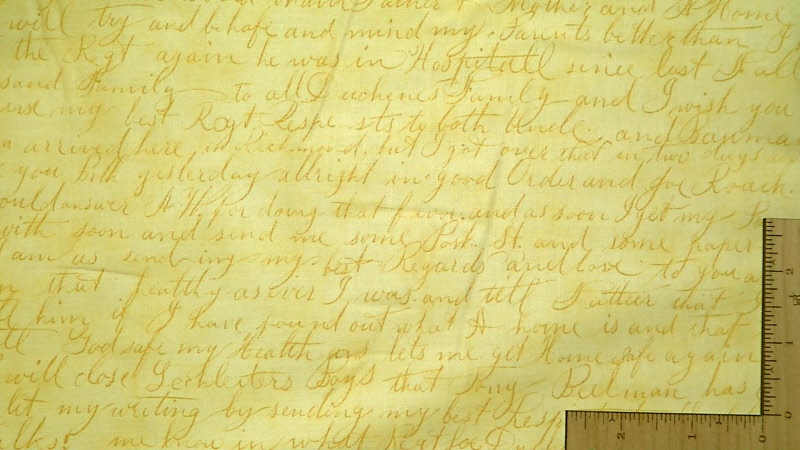 Father & Mother and A Home
will try and behafe and mind my Parents better than I
the Rgt again he was in Hospitall since last Fall
and Family to all Family and I wish you
my best Rgt Respe sts to both Uncle and Bauman
arrived here in Richmond but I got over that in two days
you Both yesterday allright in good Order and Joe Roach
ould answer A.W. for doing that favor and as soon I get my
with soon and send me some Post. St. and some paper
am as send ing my best Regards and love to you a
that healthy as ever I was and tell Father that
him if I have found out what A home is and that
God safe my Health and lets me get Home safe again
will close Lechleiters Boys that Tony Beelman has
my writing by sending my best Resp
me know in what Regt Joe
2 1 0
2 1 0